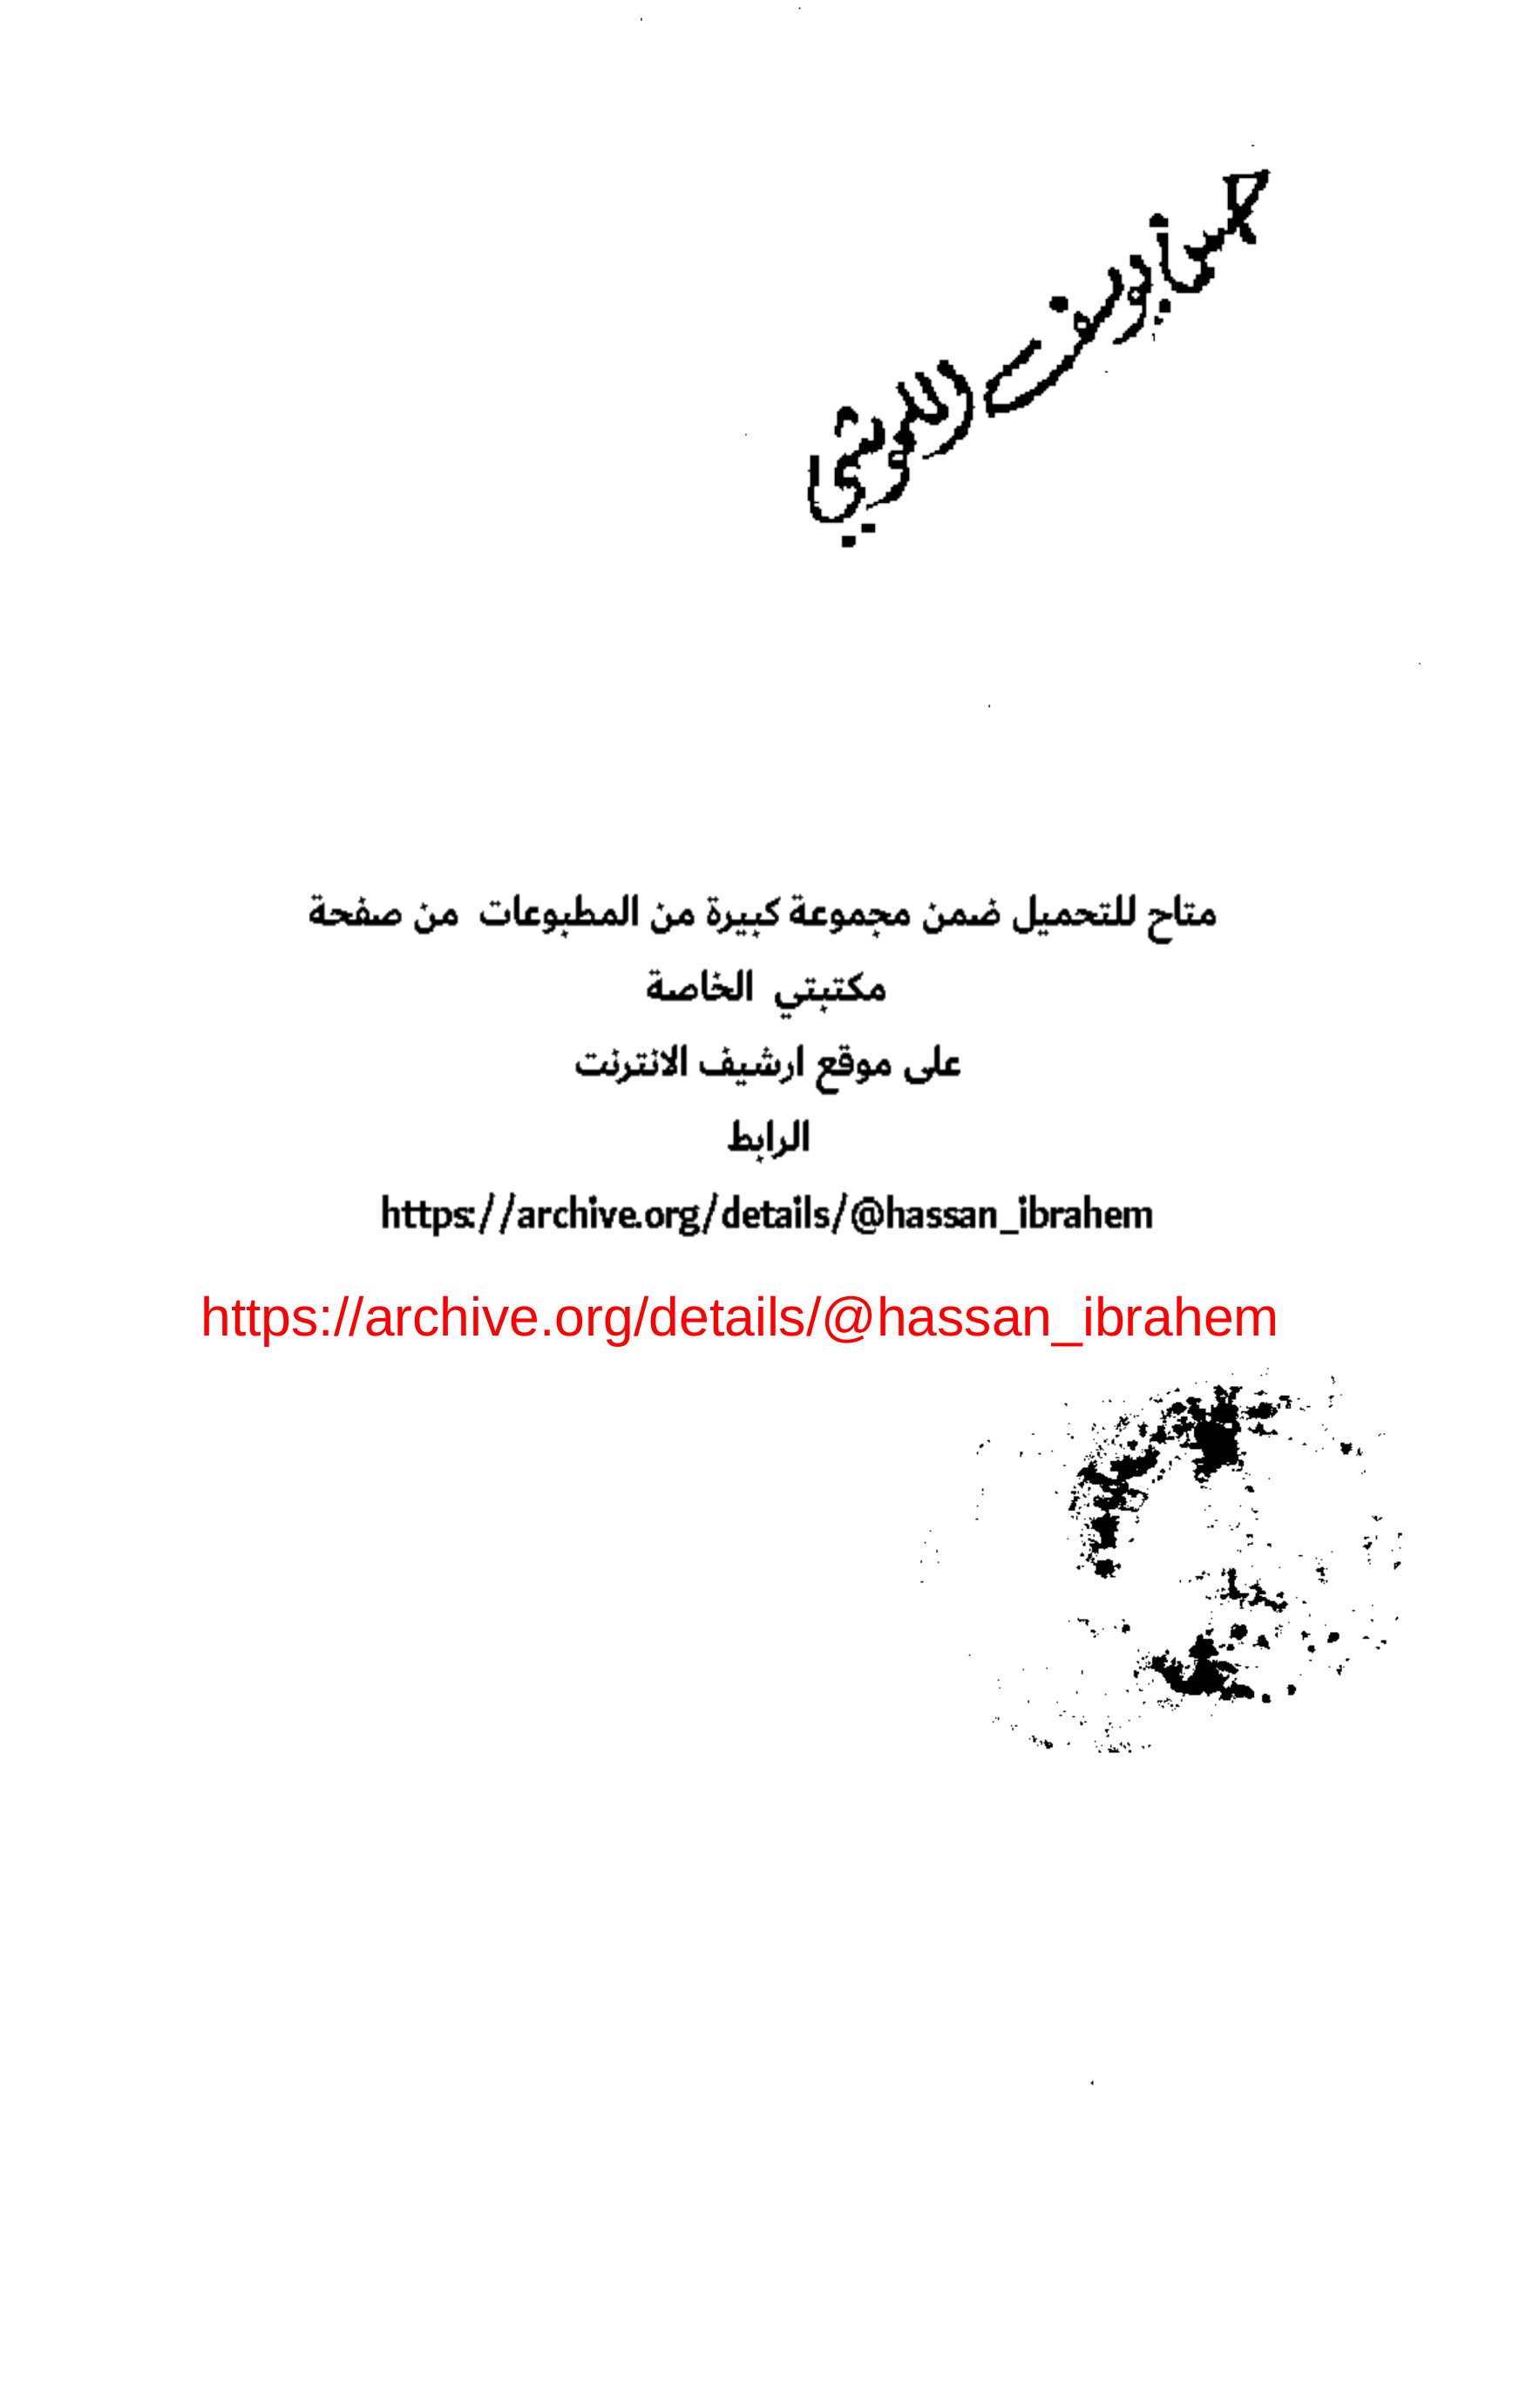 متاح للتحميل ضمن مجموعة كبيرة من المطبوعات من صفحة
مكتبتي الخاصة
على موقع ارشيف الانترنت
الرابط
https://archive.org/details/@hassan_ibrahem
https://archive.org/details/@hassan_ibrahem